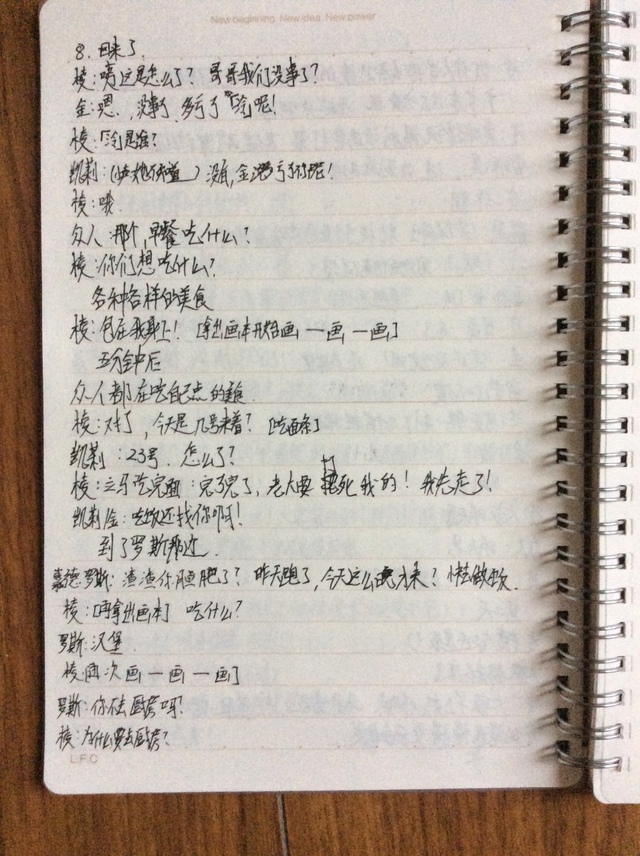 New beginning. New idea. New power
8. 回来了.
棱:咦这是怎么了？哥哥我们没事了？
金:嗯, 没事了, 多亏了
棱: 是谁？
凯莉: 没有,金 亏了你呢!
棱:哦.
众人:那个,早餐吃什么？
棱:你们想吃什么？
各种各样的美食
棱:包在我身上! [拿出画本开始画一画一画]
五分钟后
众人都在吃自己点的美食.
棱:对了,今天是几号来着？[吃面条]
凯莉:23号.怎么了？
棱:立马吃完面:完了完了,老大要打死我的! 我先走了!
凯莉/金:吃饭还找你啊!
到了罗斯那边.
嘉德罗斯:渣渣你胆肥了？昨天跑了,今天这么晚才来？快去做饭.
棱:[再拿出画本] 吃什么？
罗斯:汉堡.
棱:[再次画一画一画]
罗斯:你不去厨房吗!
棱:为什么要去厨房？
L.F.C